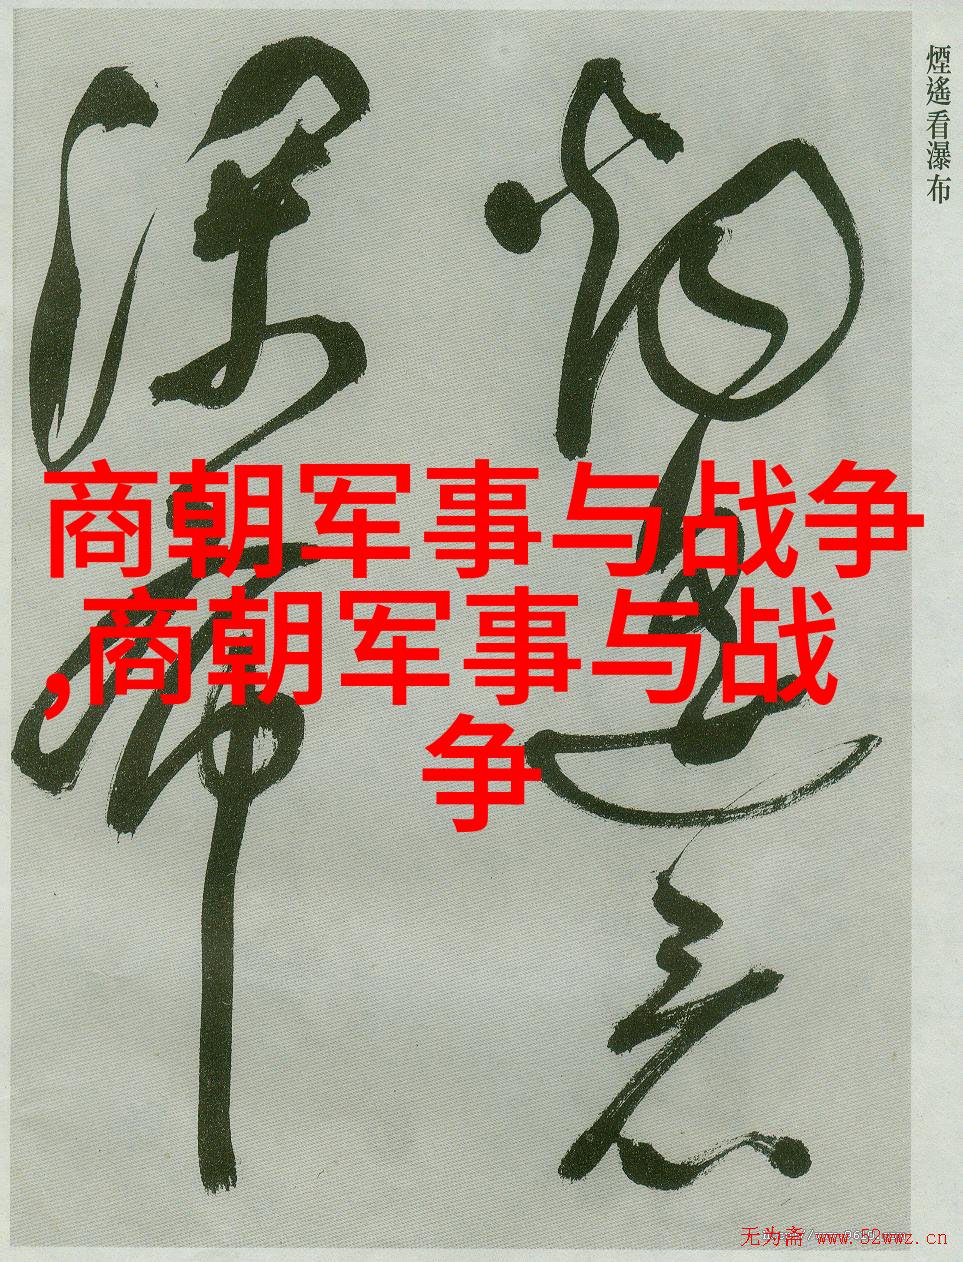 煙遙看瀑布
商朝军事与战争
,商朝军事与战
争
煙遙看
瀑布
无为斋 www.52wwz.cn